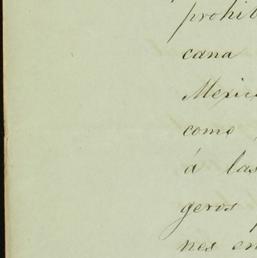 prohib
cana
Mexic
como
á las
geros
nes en